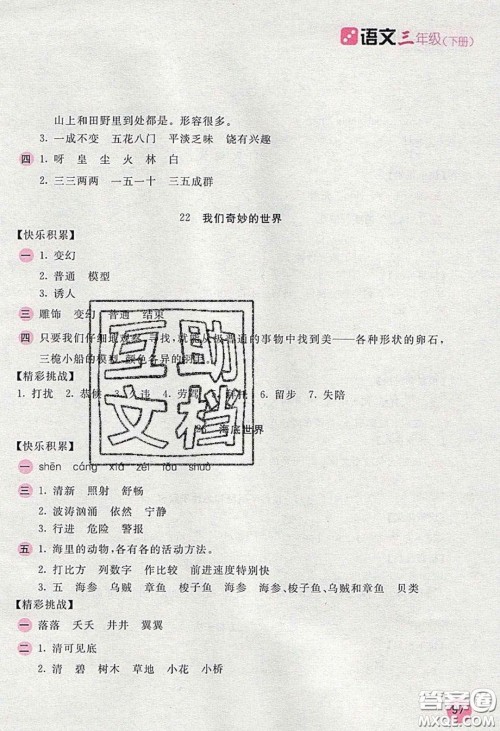 语文三年级(下册)
山上和田野里到处都是。形容很多。
3. 一成不变 五花八门 平淡乏味 饶有兴趣
四 1. 呀 皇 尘 火 林 白
2. 三三两两 一五一十 三五成群
22 我们奇妙的世界
【快乐积累】
一 1. 变幻
2. 普通 模型
3. 诱人
三 雕饰 变幻 普通 结束
四 只要我们仔细地观察、寻找,就能从极普通的事物中找到美——各种形状的卵石,
三桅小船的模型,颜色各异的
【精彩挑战】
1. 打扰 2. 恭候 3. 久违 4. 劳驾 拜托 6. 留步 7. 失陪
海底世界
【快乐积累】
一 shēn cáng xiā zéi tōu shuō
三 1. 清新 照射 舒畅
2. 波涛汹涌 依然 宁静
3. 行进 危险 警报
五 1. 海里的动物,各有各的活动方法。
2. 打比方 列数字 作比较 前进速度特别快
3. 五 海参 乌贼 章鱼 梭子鱼 海参 海参 梭子鱼、乌贼和章鱼 贝类
【精彩挑战】
一 落落 夭夭 井井 翼翼
二 1. 清可见底
2. 清 碧 树木 草地 小花 小桥
互助
文档
97
答案圈
MXQE.COM